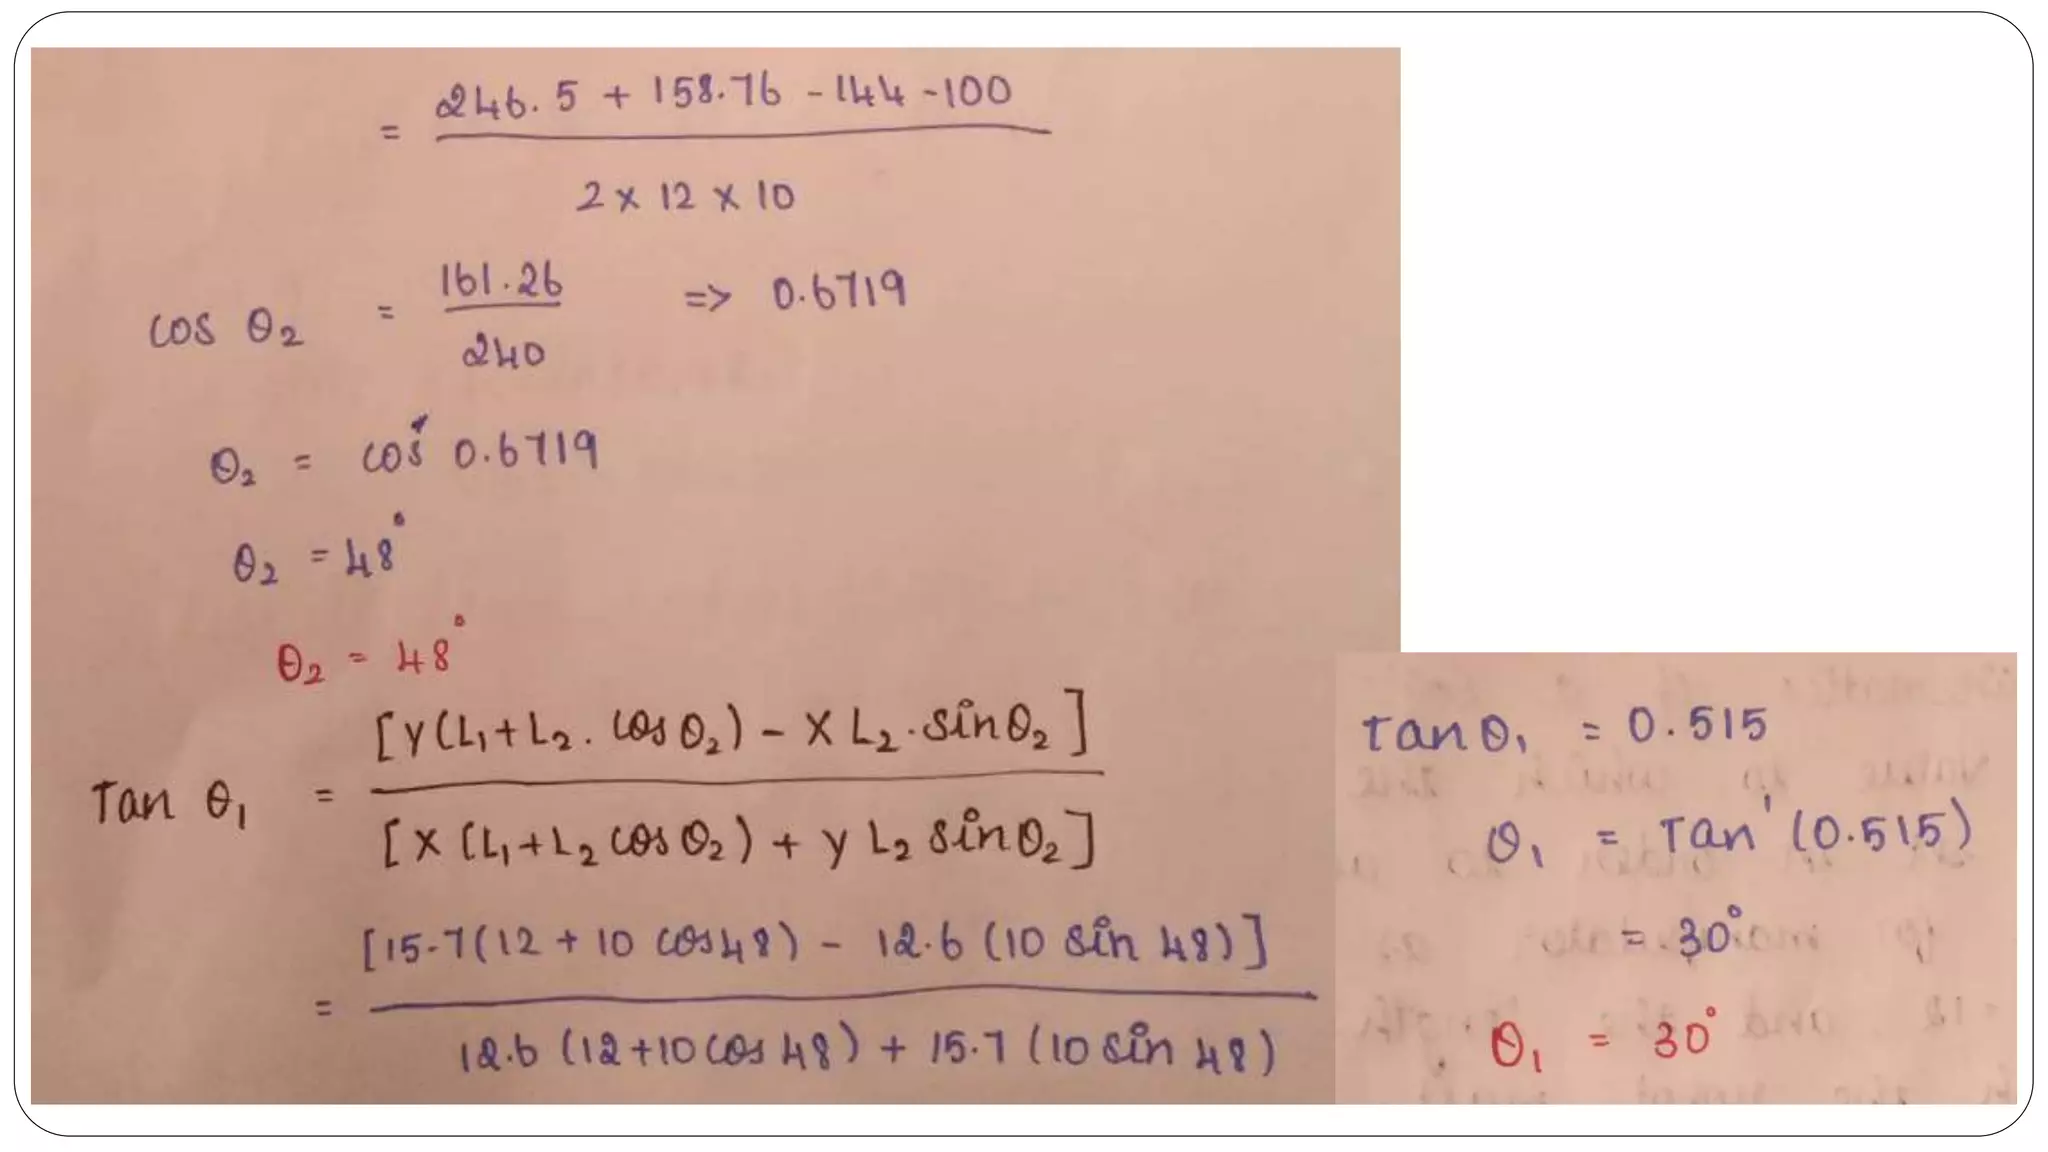 = 246.5 + 158.76 - 144 - 100
2 x 12 x 10
cos θ2 = 161.26 / 240 => 0.6719
θ2 = cos⁻¹ 0.6719
θ2 = 48°
θ2 = 48°
Tan θ1 = [Y(L1+L2. cos θ2) - X L2. sin θ2]
[X (L1+L2 cos θ2) + Y L2 sin θ2]
= [15.7(12 + 10 cos 48) - 12.6 (10 sin 48)]
12.6 (12+10 cos 48) + 15.7 (10 sin 48)
Tan θ1 = 0.515
θ1 = Tan' (0.515)
= 30°
θ1 = 30°